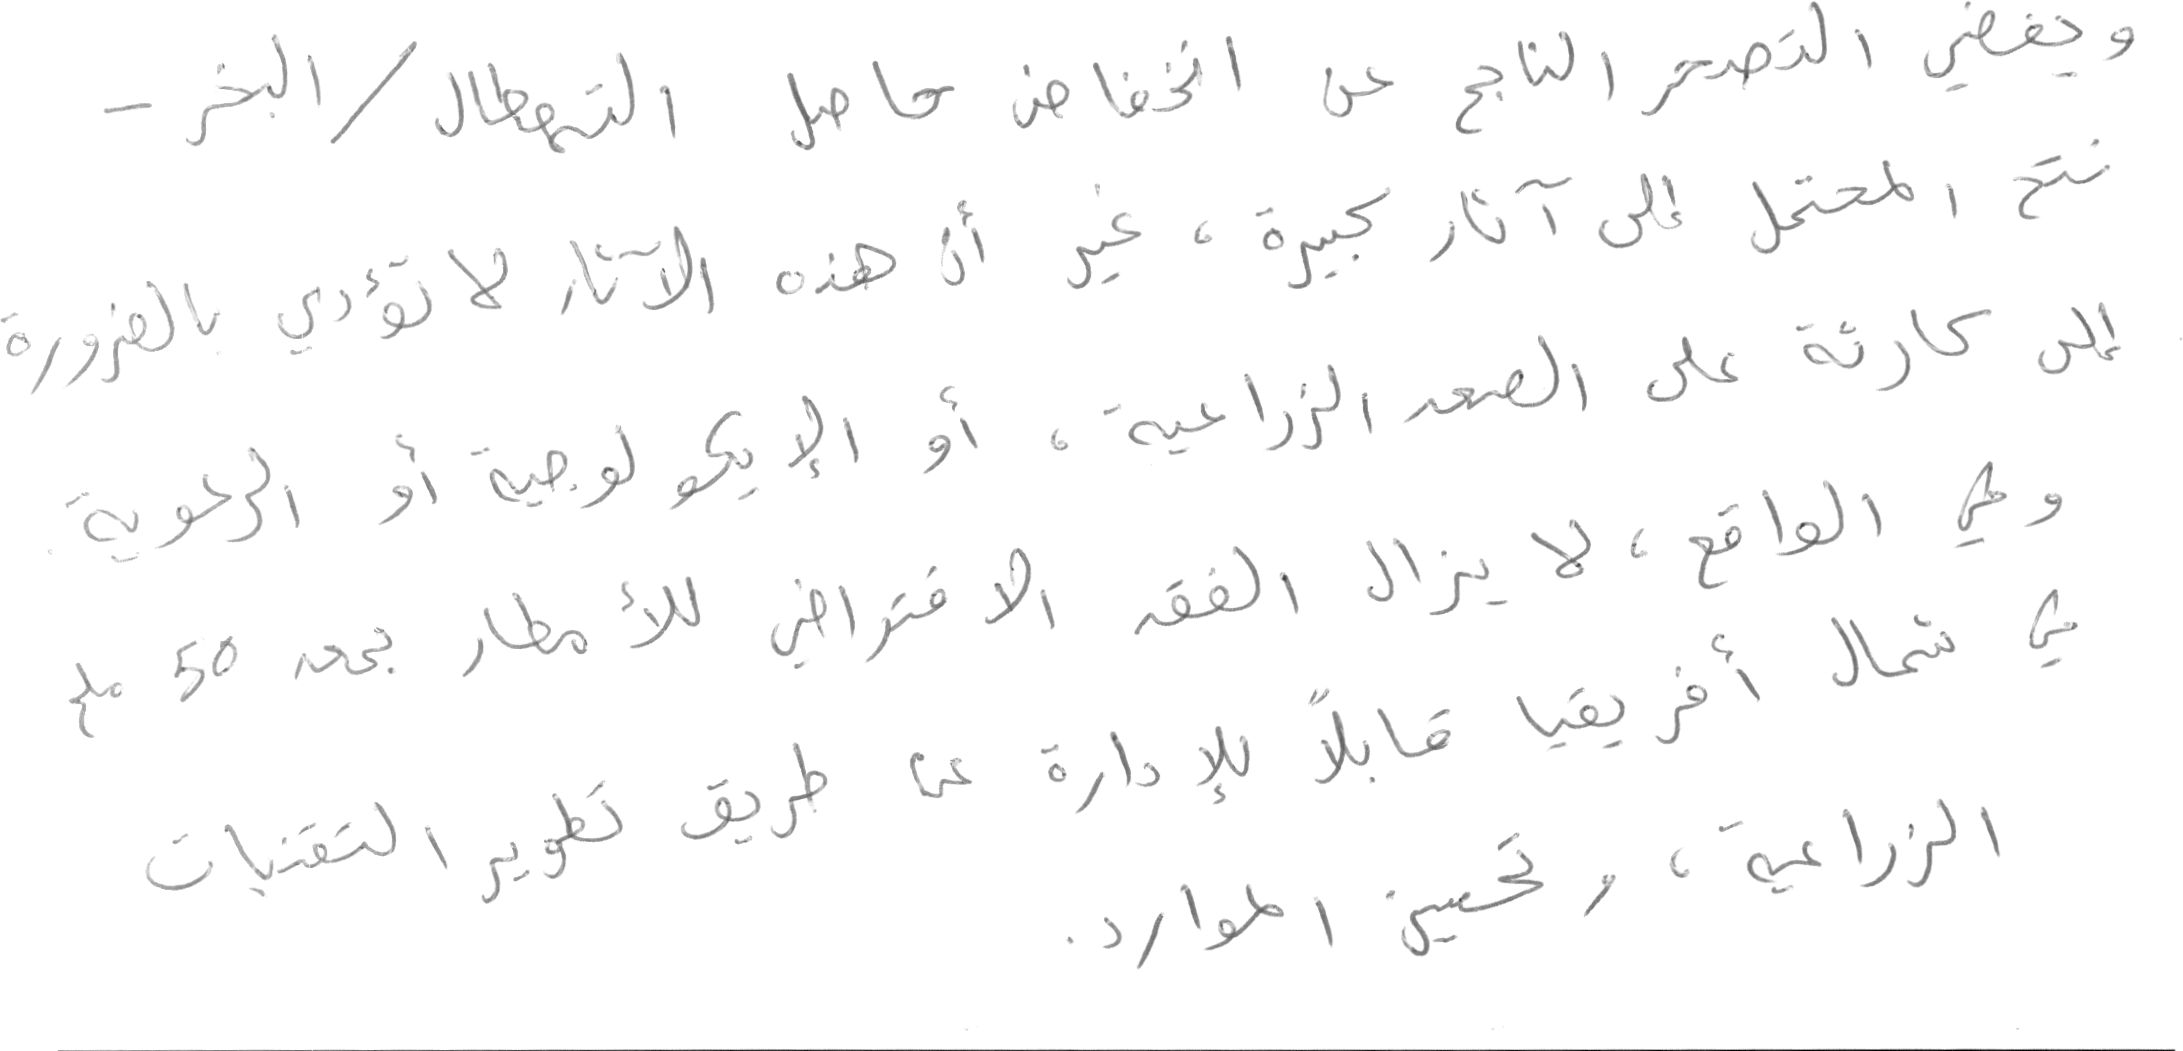 ويفضي التصحر الناجم عن انخفاض حاصل التهطال/البخر -
نتح المحتمل إلى آثار كبيرة، غير أن هذه الآثار لا تؤدي بالضرورة
إلى كارثة على الصعد الزراعية، أو الإيكولوجية أو الرعوية.
وفي الواقع، لا يزال الفقد الافتراضي للأمطار بمعد 50 ملم
في شمال أفريقيا قابلاً للإدارة عن طريق تطوير التقنيات
الزراعية، وتحسين الموارد.